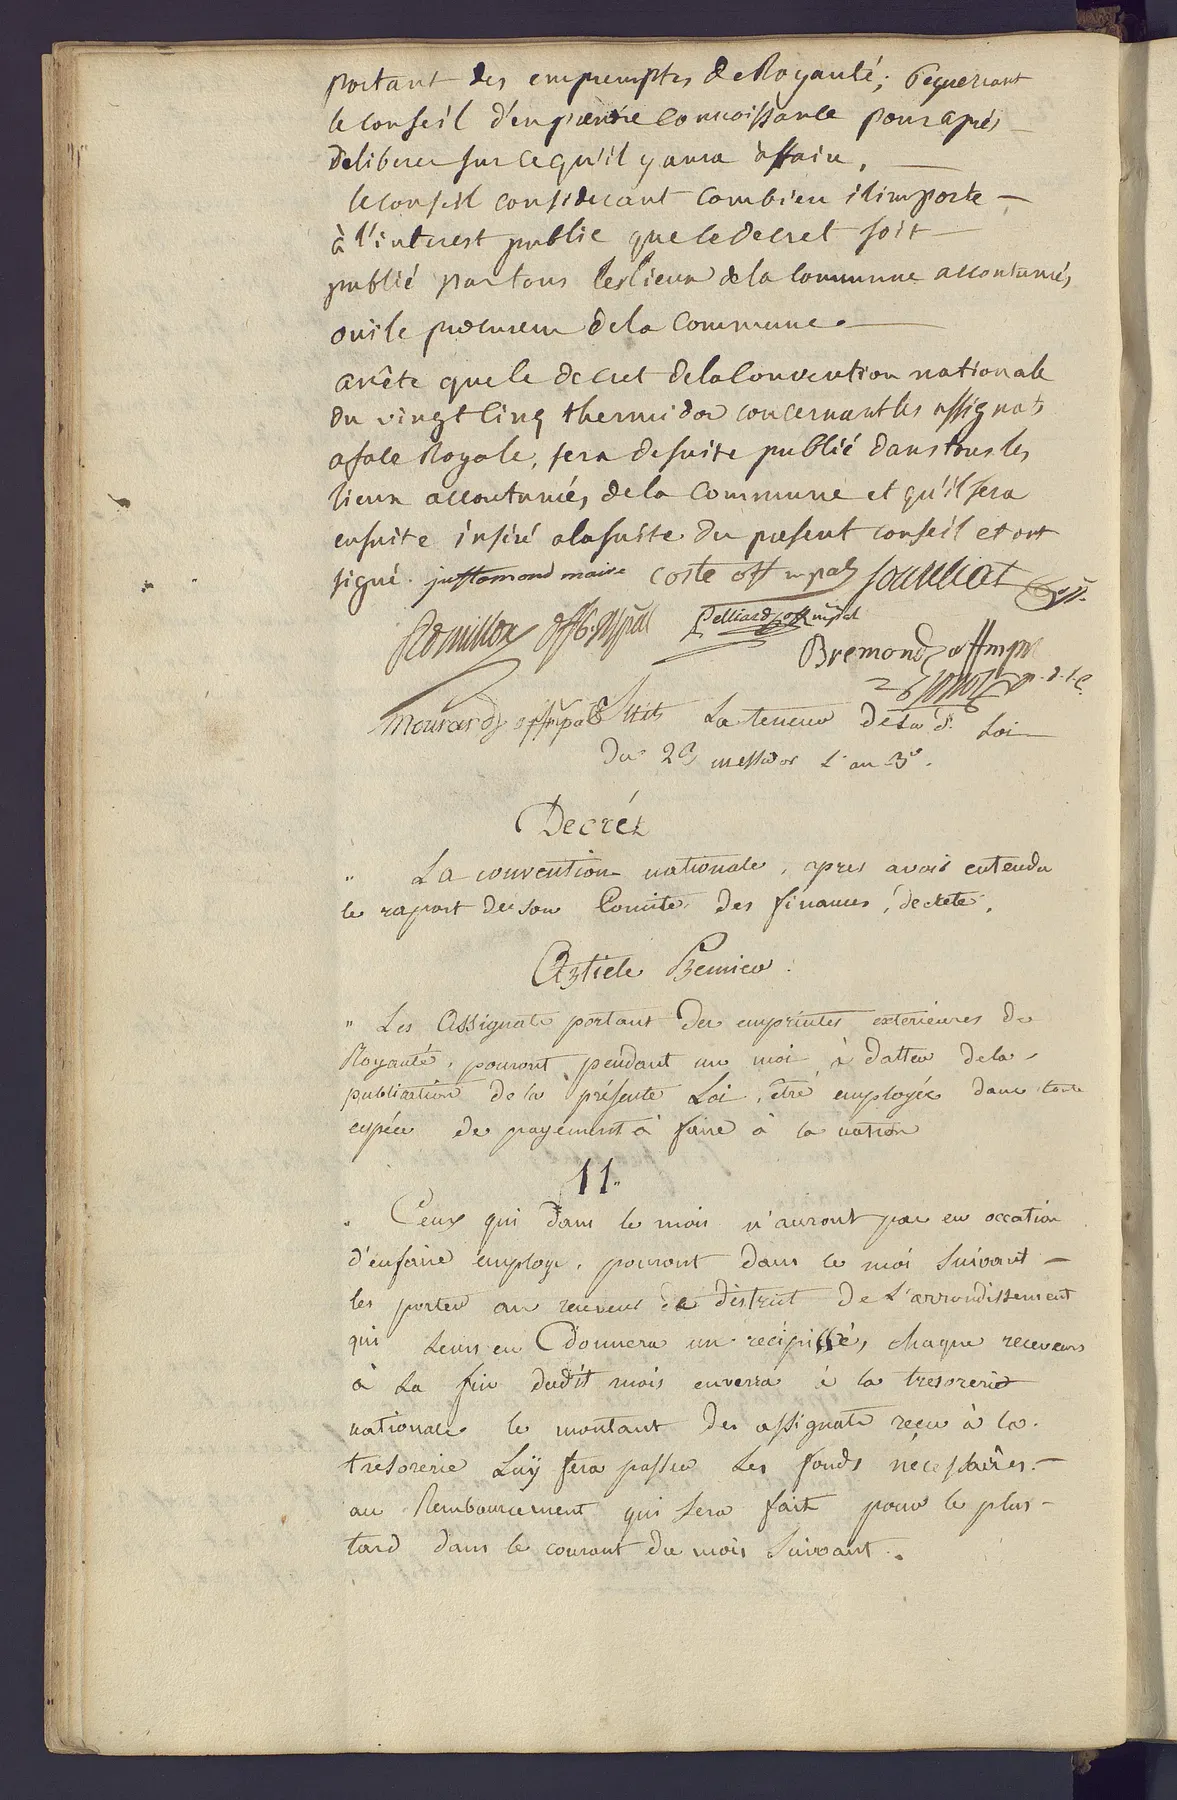 portant des empremptes de Royauté; Requerant
le conseil d'en prendre connoissance pour aprés
deliberer sur ce qu'il y aura affaire,
le conseil considerant combien il importe
à l'interest public que le decret soit
publié par tous les lieux de la commune accoutumés,
oui le procureur de la commune.
arrête que le decret de la Convention nationale
du vingt cinq thermidor concernant les assignats
a face Royale, sera de suite publié dans tous les
lieux accoutumés, de la commune et qu'il sera
ensuite inséré a la suite du present conseil et ont
signé. justamond maire coste off mpal
Romillon off mpal Pelliard off mpal
Bremond off mp
Mourard off mpal Suit La teneur de la d. Loi
Du messidor l'an 3e.
Decrét
" La convention nationale, apres avoir entendu
le raport de son Comité des finances, décrete,
Article Premier.
" Les Assignats portant des emprintes exterieures de
Royauté, pouront pendant un moi à datter de la
publication de la présente Loi, être employés dans toute
espéce de payement à faire à la nation
11.
" Ceux qui dans le mois n'auront pas eu occation
d'enfaire employ, pouront dans le moi suivant
les porter au receveur de district de l'arrondissement
qui Leurs en donnera un recipissé, chaque receveurs
à La fin dudit mois enverra à la tresorerie
nationale le montant des assignats reçu à la
tresorerie Luÿ sera passer Les fonds nécessaires
au Remboursement qui sera fait pour le plus
tard dans le courant du mois suivant.